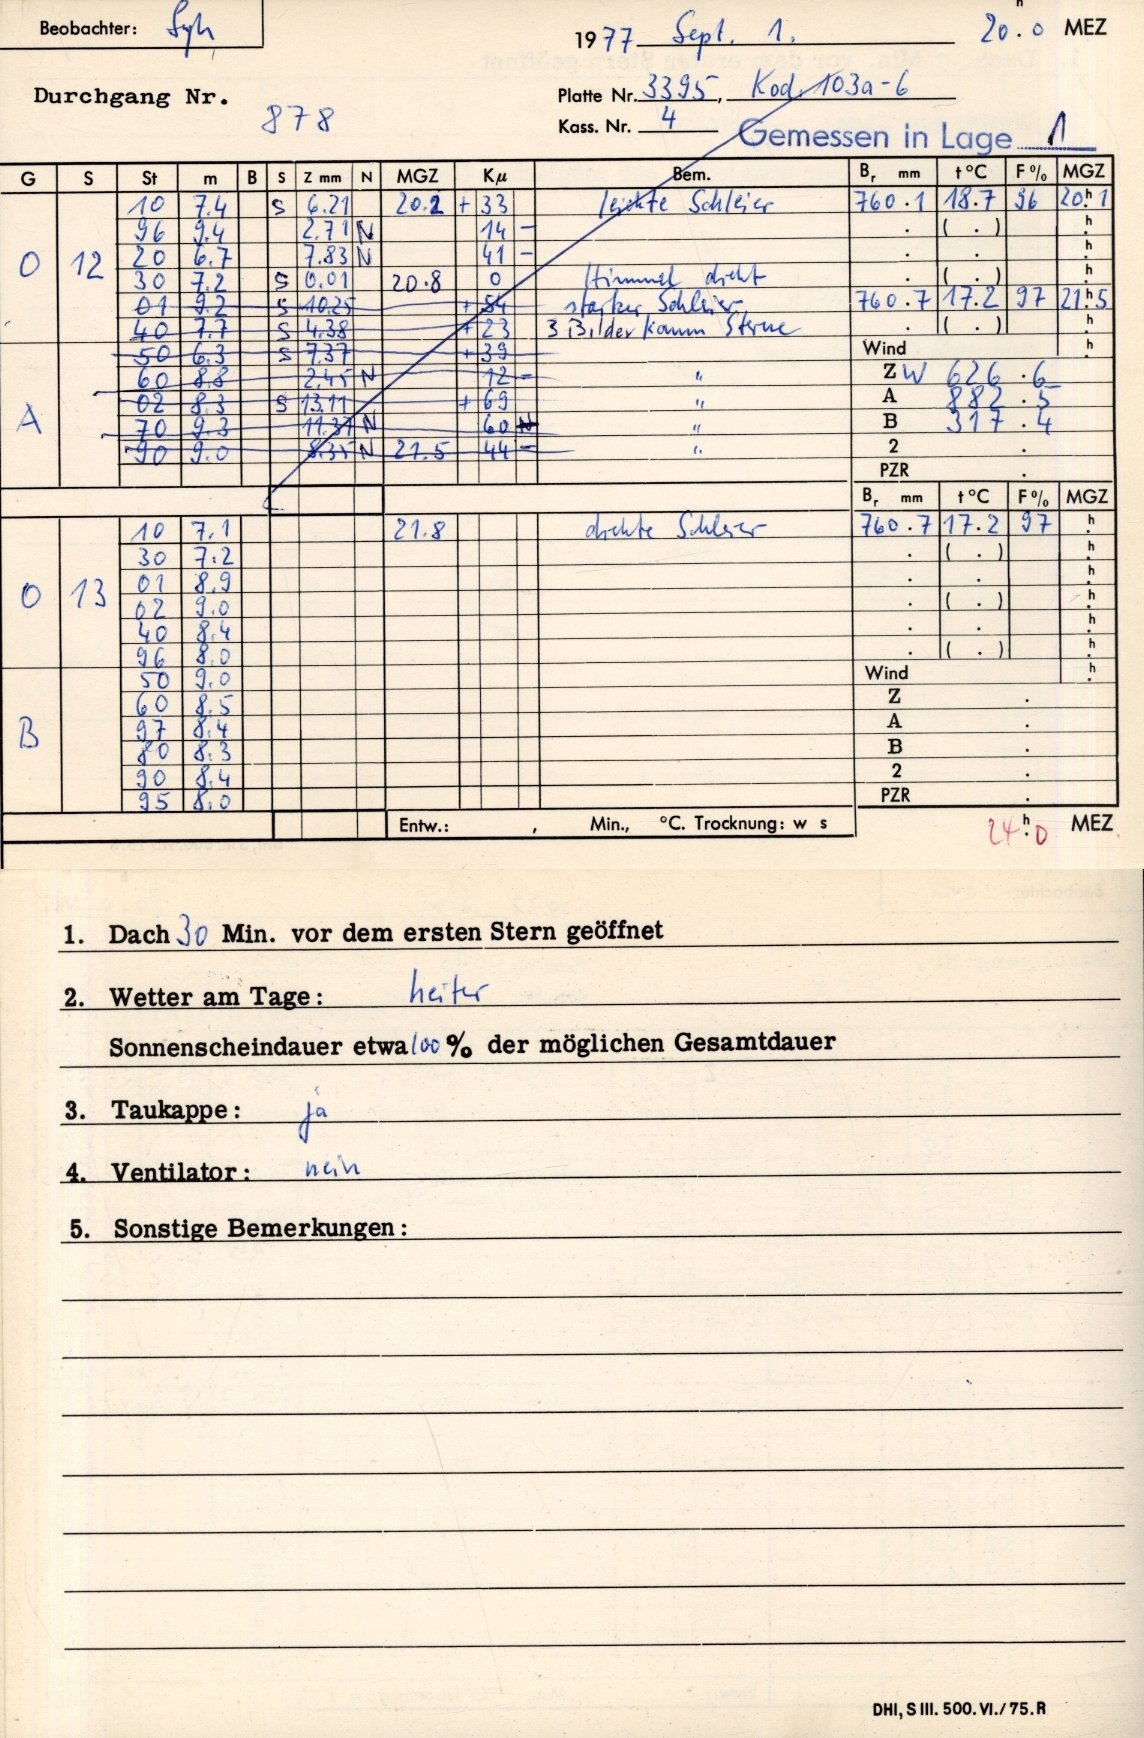 Beobachter: Syh
1977 Sept. 1. 20.0 h MEZ
Durchgang Nr. 878
Platte Nr. 3395, Kod. 103a-6
Kass. Nr. 4
Gemessen in Lage 1
G S St m B S Z mm N MGZ Kµ Bem. Br mm t °C F % MGZ
O 12
10 7.4 S 6.21 20.2 + 33 leichte Schleier 760.1 18.7 96 20.1 h
96 9.4 2.71 N 14 - . ( . ) h
20 6.7 7.83 N 41 - . . h
30 7.2 S 0.01 20.8 0 Himmel dicht . ( . ) h
01 9.2 S 10.25 + 54 starker Schleier 760.7 17.2 97 21.5 h
40 7.7 S 4.38 + 23 3 Bilder kaum Sterne . ( . ) h
A
50 6.3 S 7.37 + 39 Wind h
60 8.8 2.45 N 12 - " Z W 626.6
02 8.3 S 13.11 + 69 " A 882.5
70 9.3 11.37 N 60 N " B 317.4
90 9.0 8.35 N 21.5 44 - " 2 .
PZR .
Br mm t °C F % MGZ
O 13
10 7.1 21.8 dichte Schleier 760.7 17.2 97 h
30 7.2 . ( . ) h
01 8.9 . . h
02 9.0 . ( . ) h
40 8.4 . . h
96 8.0 . ( . ) h
B
50 9.0 Wind h
60 8.5 Z .
97 8.4 A .
80 8.3 B .
90 8.4 2 .
95 8.0 PZR .
Entw.: , Min., °C. Trocknung: w s 24.0 h MEZ
1. Dach 30 Min. vor dem ersten Stern geöffnet
2. Wetter am Tage: heiter
Sonnenscheindauer etwa 100 % der möglichen Gesamtdauer
3. Taukappe: ja
4. Ventilator: nein
5. Sonstige Bemerkungen:
DHI, S III. 500. VI./75. R